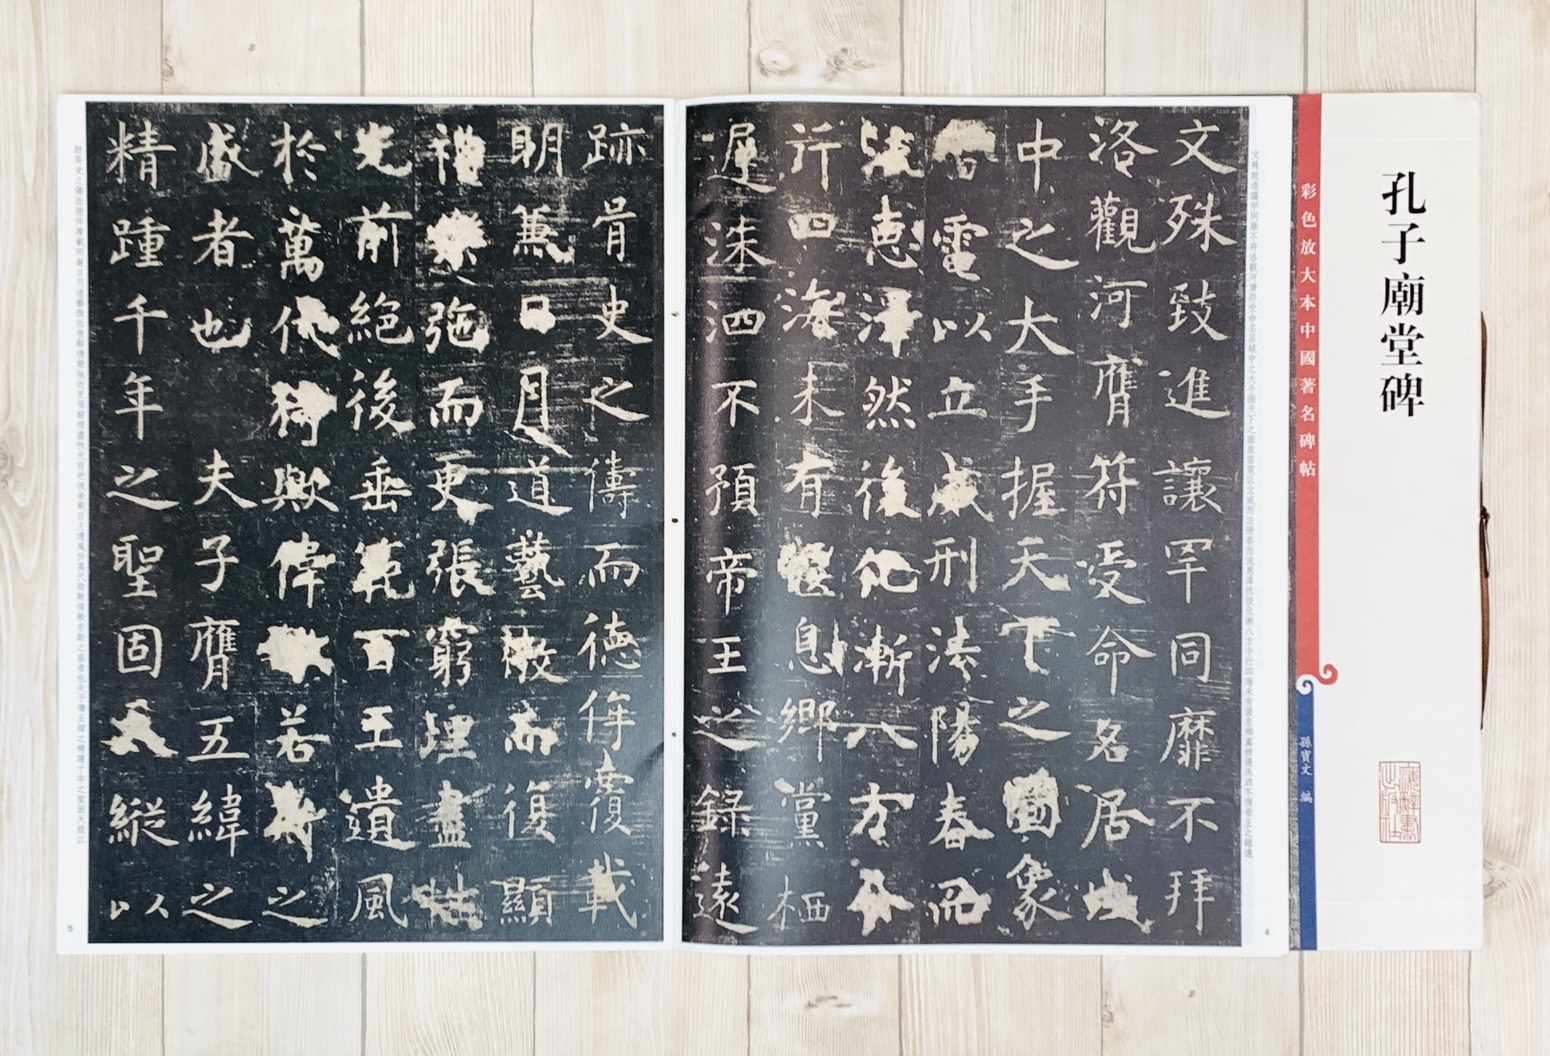 孔子廟堂碑
彩色放大本中國著名碑帖
孫寶文 編
文殊致進讓罕同靡不拜
洛觀河膺符受命名居域
中之大手握天下之圖象
雷電以立威刑法陽春而
流惠澤然後化漸八方令
行四海未有偃息鄉黨栖
遲洙泗不預帝王之錄遠
4
跡胥史之儔而德侔覆載
明兼日月道藝微而復顯
禮樂弛而更張窮理盡性
光前絕後垂範百王遺風
於萬代猗歟偉歟若斯之
盛者也 夫子膺五緯之
精踵千年之聖固天縱以
5